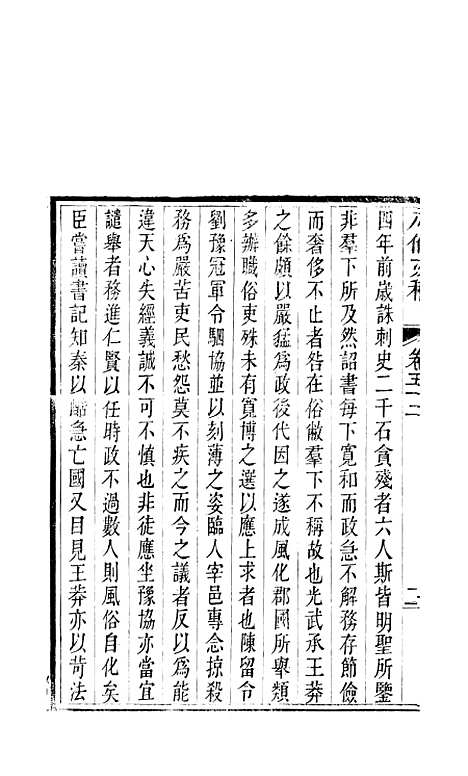 卷五十二
四年前歲誅刺史二千石貪殘者六人斯皆明聖所鑒
非羣下所及然詔書每下寬和而政急不解務存節儉
而奢侈不止者咎在俗敝羣下不稱故也光武承王莽
之餘頗以嚴猛爲政後代因之遂成風化郡國所舉類
多辦職俗吏殊未有寬博之選以應上求者也陳留令
劉豫冠軍令駟協並以刻薄之姿臨人宰邑專念掠殺
務爲嚴苦吏民愁怨莫不疾之而今之議者反以爲能
違天心失經義誠不可不慎也非徒應坐豫協亦當宜
譴舉者務進仁賢以任時政不過數人則風俗自化矣
臣嘗讀書記知秦以酷急亡國又目見王莽亦以苛法